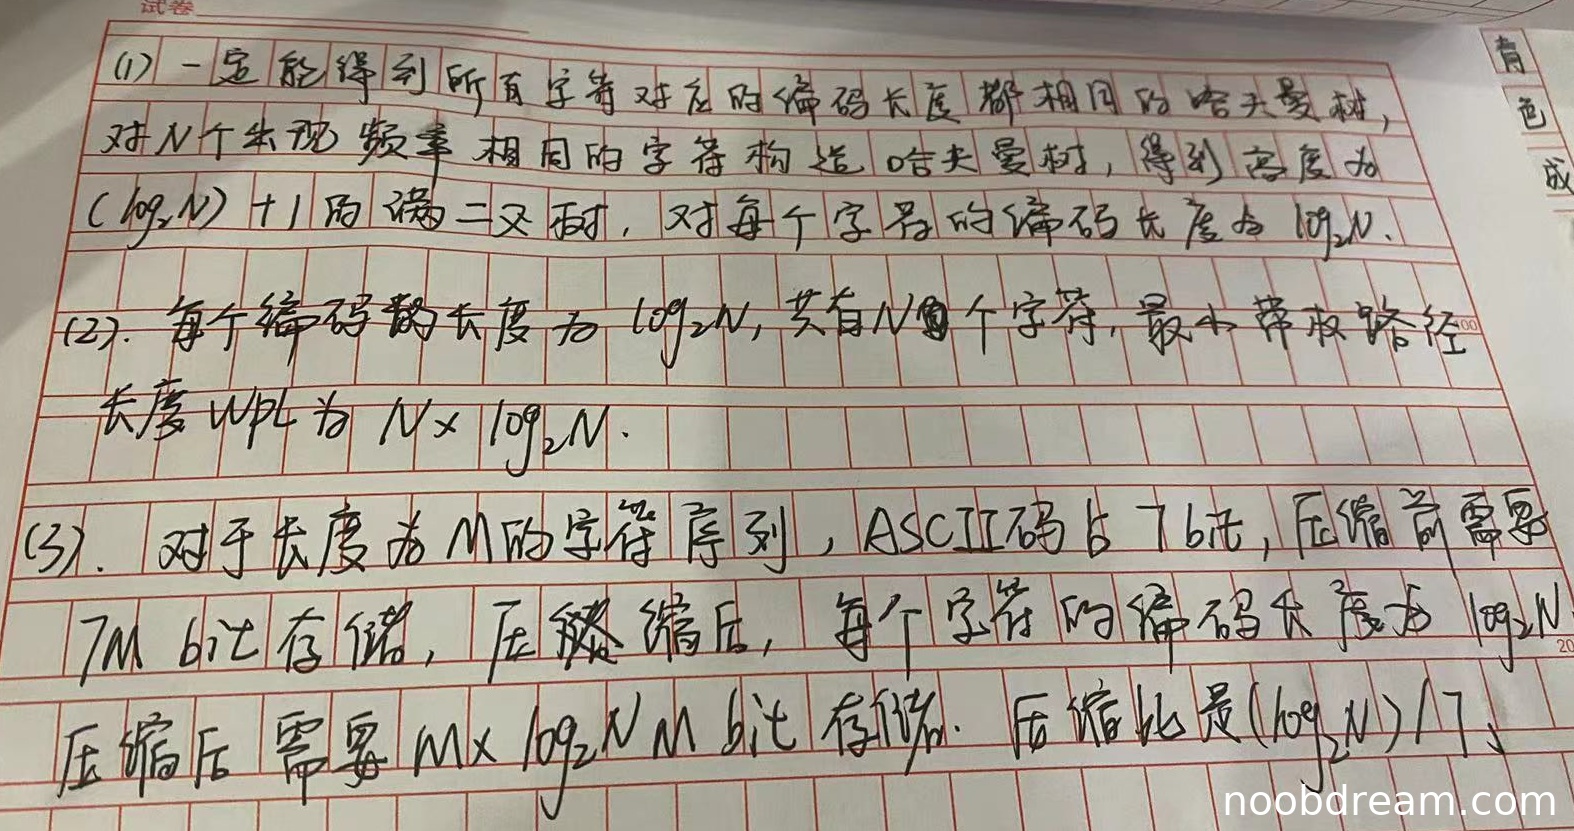 试卷
(1) 一定能得到所有字符对应的编码长度都相同的哈夫曼树,
对N个出现频率相同的字符构造哈夫曼树, 得到高度为
(log₂N)+1的满二叉树, 对每个字符的编码长度为 log₂N.
(2). 每个编码的长度为 log₂N, 共有N个字符, 最小带权路径
长度WPL为 N × log₂N.
(3). 对于长度为M的字符序列, ASCII码占 7 bit, 压缩前需要
7M bit存储, 压缩后, 每个字符的编码长度为 log₂N
压缩后需要 M× log₂N M bit 存储. 压缩比是(log₂N)/7、
青
色
成
noobdream.com